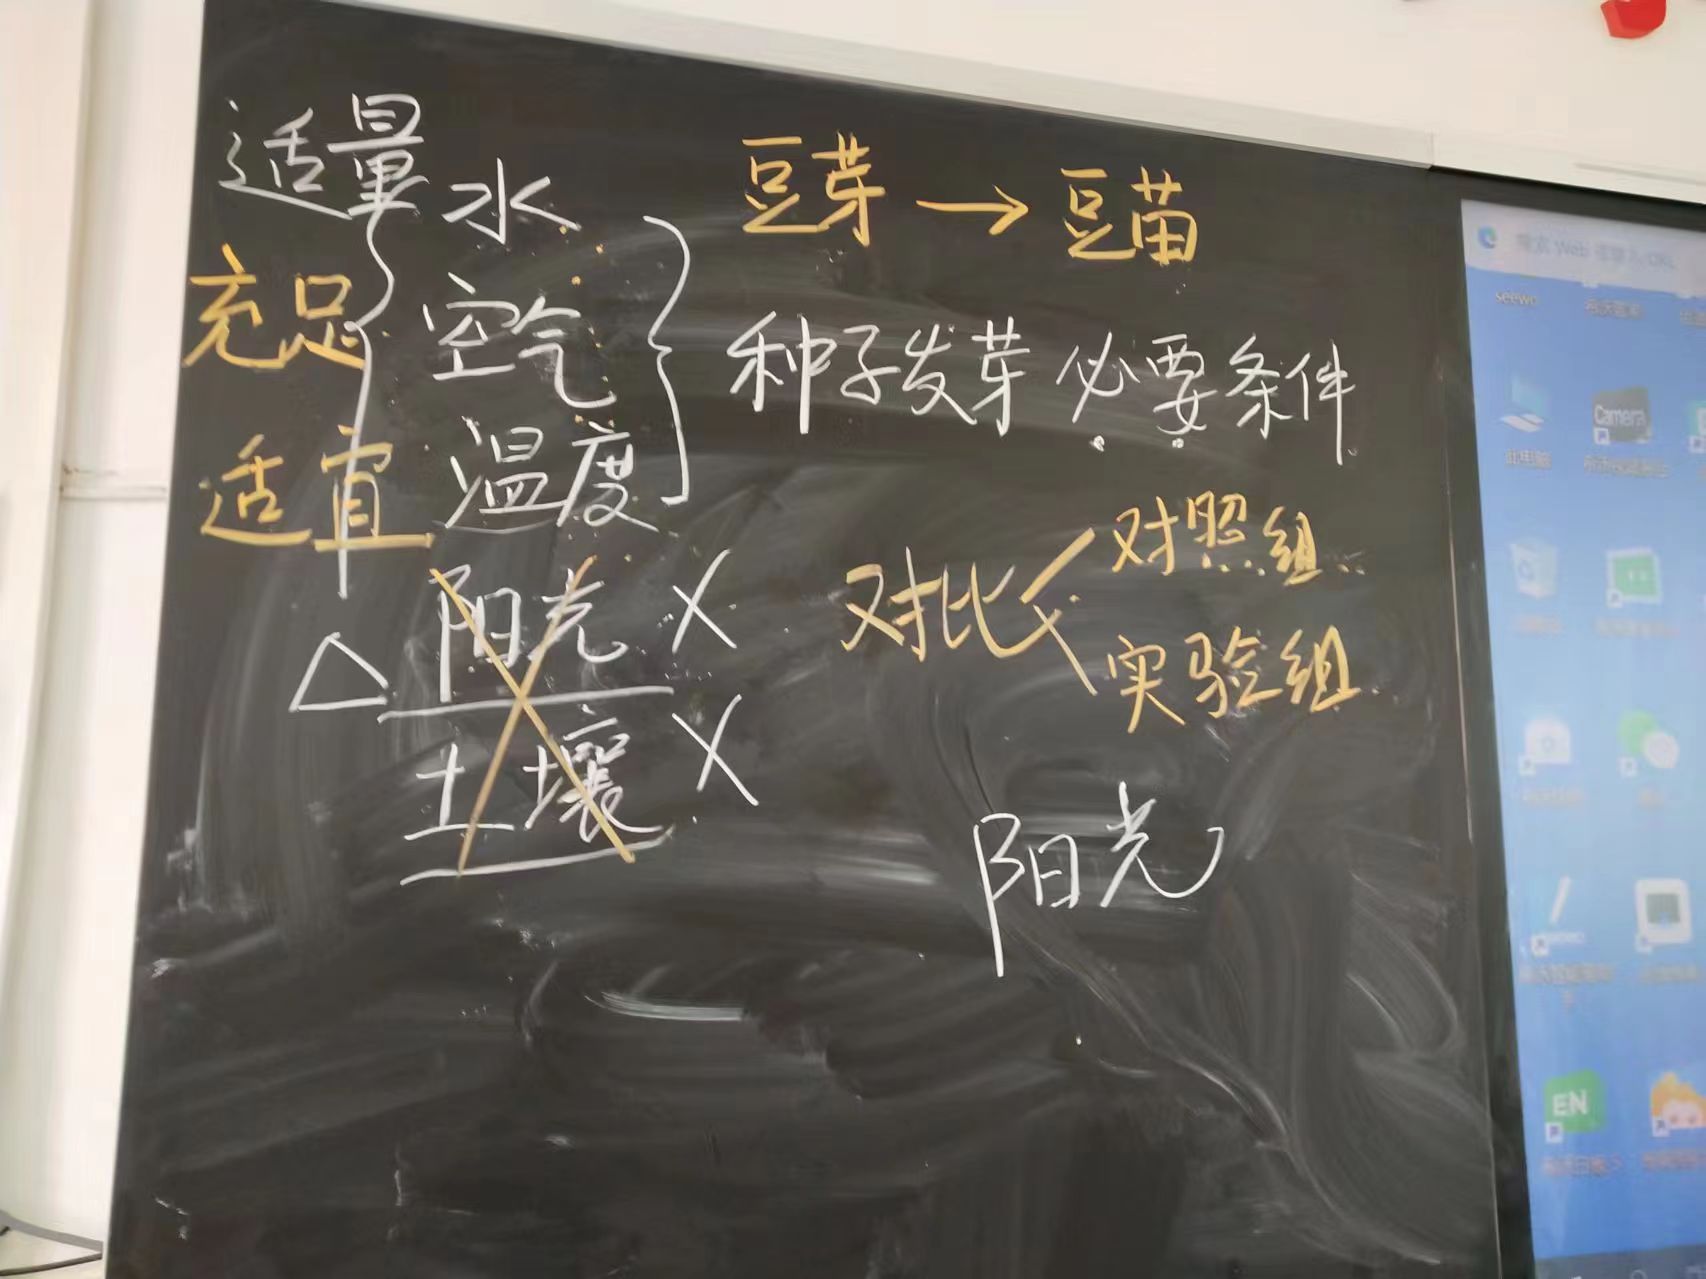 适量 水
充足 空气
适宜 温度
阳光 X
土壤 X
豆芽 → 豆苗
种子发芽 必要条件
对比
对照组
实验组
阳光
seewo
此电脑
Camera
EN